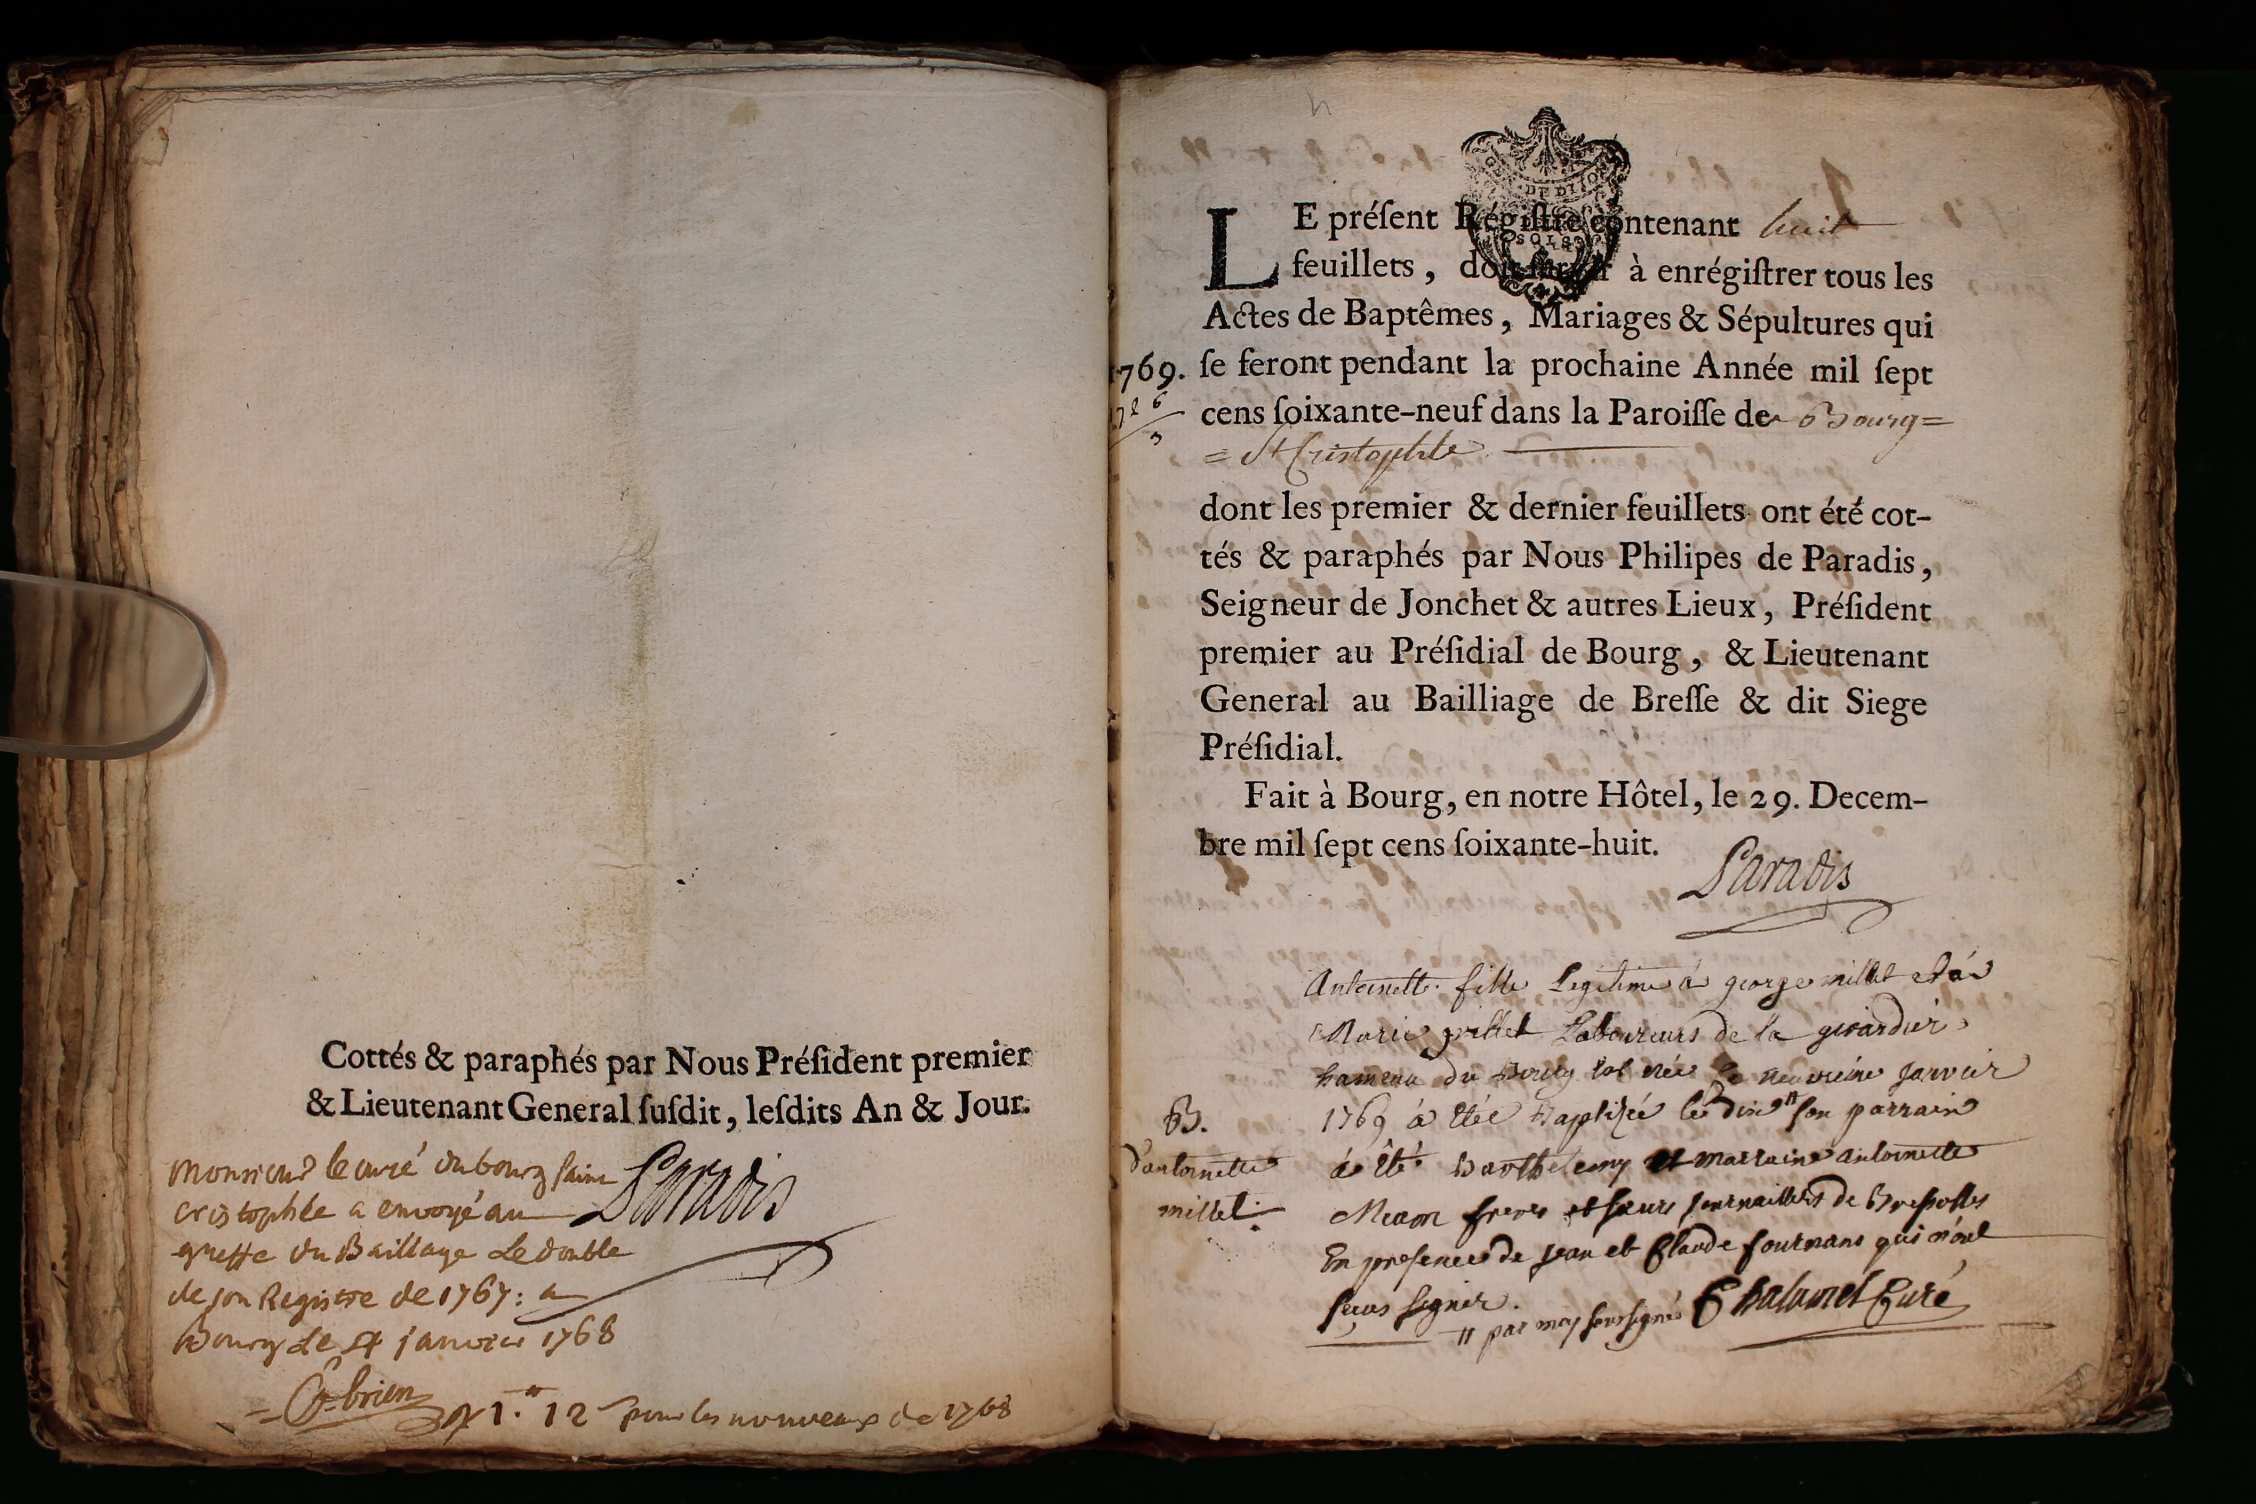 Cottés & paraphés par Nous Préſident premier
& Lieutenant General ſuſdit, leſdits An & Jour.
Paradis
monsieur le curé du bourg saint
cristophle a envoyé au
greffe du Baillage le double
de son Registre de 1767: a
Bourg le 4 janvier 1768
1. 12 pour les nouveaux de 1768
DE DIJON
LE préſent Régiſtre contenant huit
feuillets, doit ſervir à enrégiſtrer tous les
Actes de Baptêmes, Mariages & Sépultures qui
1769. ſe feront pendant la prochaine Année mil ſept
cens ſoixante-neuf dans la Paroiſſe de Bourg=
= St Cristophle
dont les premier & dernier feuillets ont été cot-
tés & paraphés par Nous Philipes de Paradis,
Seigneur de Jonchet & autres Lieux, Préſident
premier au Préſidial de Bourg, & Lieutenant
General au Bailliage de Breſſe & dit Siege
Préſidial.
Fait à Bourg, en notre Hôtel, le 29. Decem-
bre mil ſept cens ſoixante-huit.
Paradis
B.
d'antoinette
millet.
Antoinette fille Legitime à george millet et à
Marie millet Laboureurs de la girardier
hameau du Bourg est née le neuvieme janvier
1769 à étée Baptizée le dix " son parrain
à été Barthelemy et marraine antoinette
freres et sœurs journailliers de Bressolles
En presence de jean et Claude fournans qui n'ont
sçeus signer.
" par moy soussigné Chalumet Curé